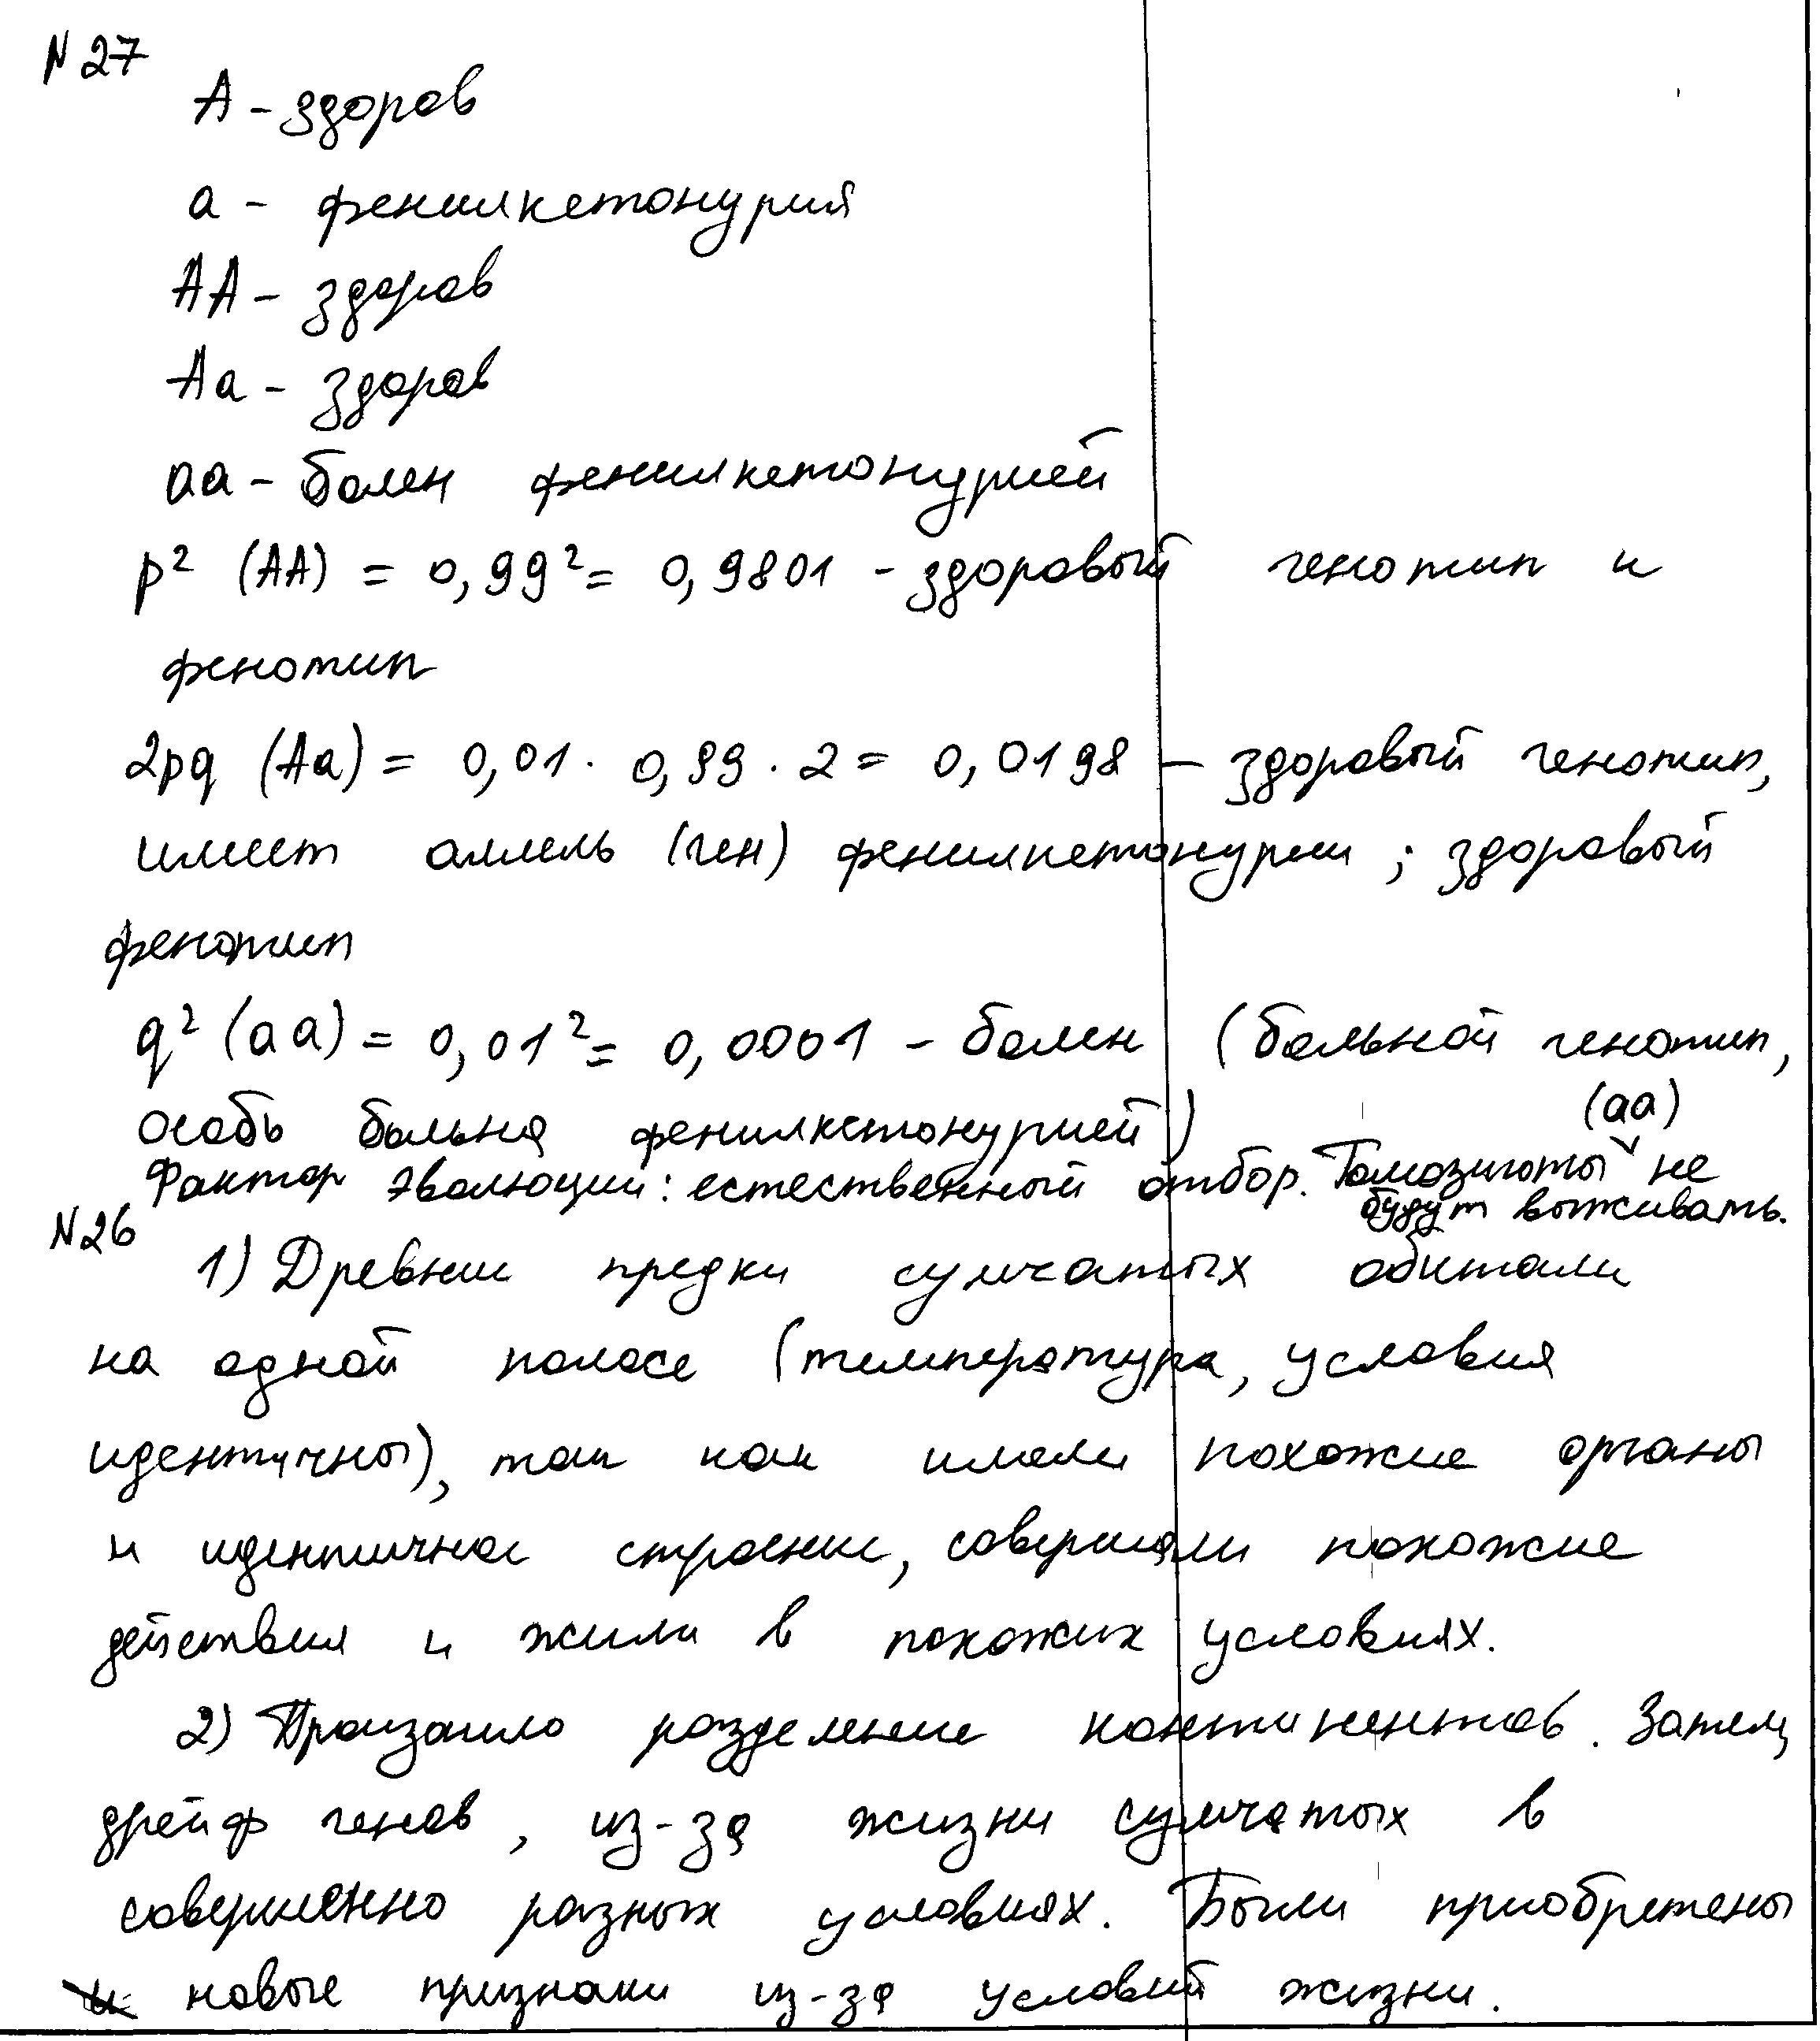 N 27
А - здоров
а - фенилкетонурия
АА - здоров
Аа - здоров
аа - болен фенилкетонурией
p² (АА) = 0,99² = 0,9801 - здоровый генотип и
фенотип
2pq (Аа) = 0,01 · 0,99 · 2 = 0,0198 - здоровый генотип,
имеет аллель (ген) фенилкетонурии ; здоровый
фенотип
q² (аа) = 0,01² = 0,0001 - болен (больной генотип,
особь больна фенилкетонурией)
(аа)
Фактор эволюции: естественный отбор. Гомозиготы не
будут выживать.
N26
1) Древние предки сумчатых обитали
на одной полосе (температура, условия
идентичны), так как имели похожие органы
и идентичное строение, совершали похожие
действия и жили в похожих условиях.
2) Произошло разделение континентов. Затем,
дрейф генов, из-за жизни сумчатых в
совершенно разных условиях. Были приобретены
новые признаки из-за условий жизни.